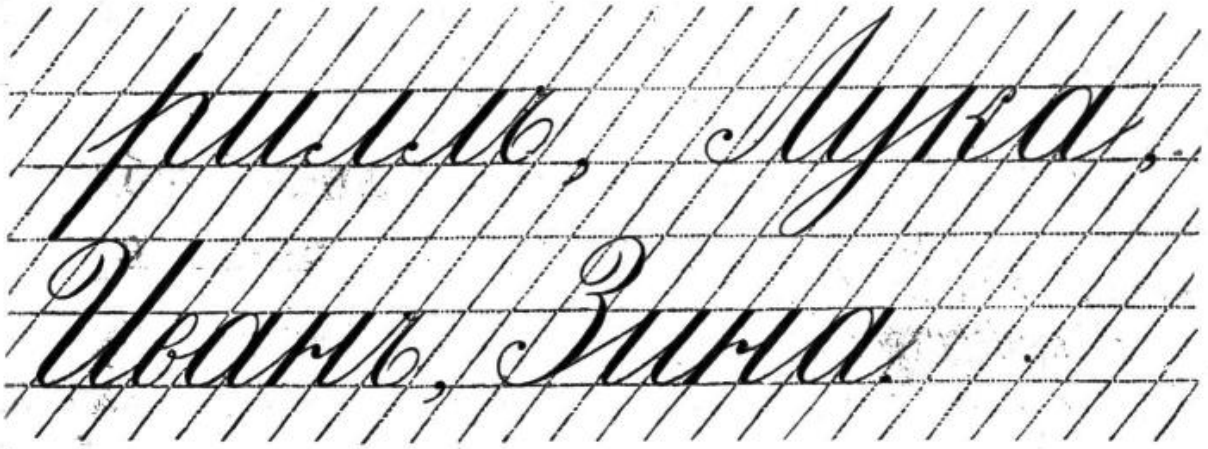 риллъ, Лука,
Иванъ, Зина.